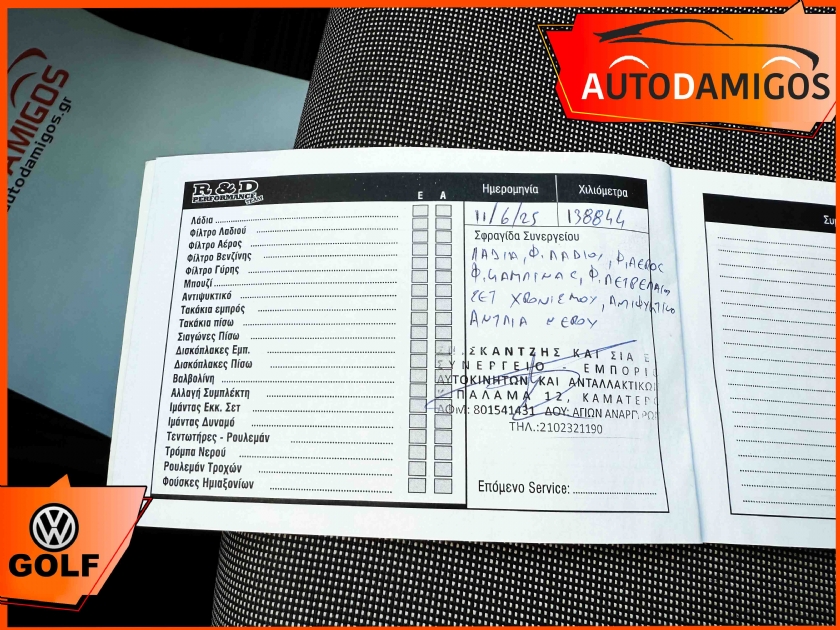 AUTODAMIGOS
AMIGOS
autodamigos.gr
R&D
PERFORMANCE
Ε Α
Λάδια
Φίλτρο Λαδιού
Φίλτρο Αέρος
Φίλτρο Βενζίνης
Φίλτρο Γύρης
Μπουζί
Αντιψυκτικό
Τακάκια εμπρός
Τακάκια πίσω
Σιαγώνες Πίσω
Δισκόπλακες Εμπ.
Δισκόπλακες Πίσω
Βαλβολίνη
Αλλαγή Συμπλέκτη
Ιμάντας Εκκ. Σετ
Ιμάντας Δυναμό
Τεντωτήρες - Ρουλεμάν
Τρόμπα Νερού
Ρουλεμάν Τροχών
Φούσκες Ημιαξονίων
Ημερομηνία Χιλιόμετρα
11/6/25 138844
Σφραγίδα Συνεργείου
ΛΑΔΙΑ, Φ. ΛΑΔΙΟΥ, Φ. ΑΕΡΟΣ
Φ. ΚΑΜΠΙΝΑΣ, Φ. ΠΕΤΡΕΛΑΙΟ
ΣΕΤ ΧΡΟΝΙΣΜΟΥ, ΑΝΤΙΨΥΚΤΙΚΟ
ΑΝΤΛΙΑ ΝΕΡΟΥ
ΣΚΑΝΤΖΗΣ ΚΑΙ ΣΙΑ Ε
ΣΥΝΕΡΓΕΙΟ - ΕΜΠΟΡΙΟ
ΑΥΤΟΚΙΝΗΤΩΝ ΚΑΙ ΑΝΤΑΛΛΑΚΤΙΚΩΝ
ΠΑΛΑΜΑ 12, ΚΑΜΑΤΕΡΟ
ΑΦΜ: 801541431 ΔΟΥ: ΑΓΙΩΝ ΑΝΑΡΓΥΡΩΝ
ΤΗΛ.:2102321190
Επόμενο Service:
Συμ
GOLF